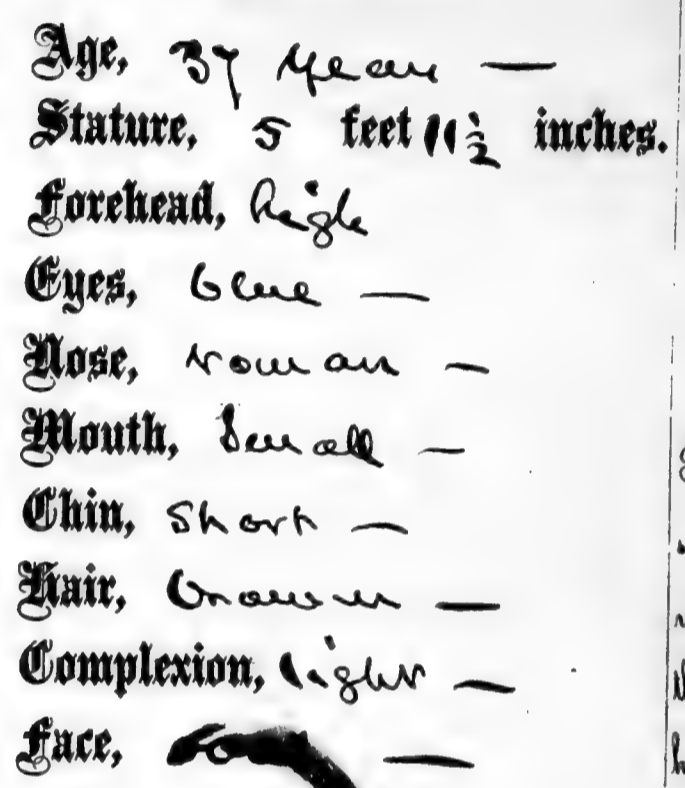 Age, 37 years —
Stature, 5 feet 11 ½ inches.
Forehead, high
Eyes, blue —
Nose, roman —
Mouth, Small —
Chin, short —
Hair, brown —
Complexion, light —
Face, —